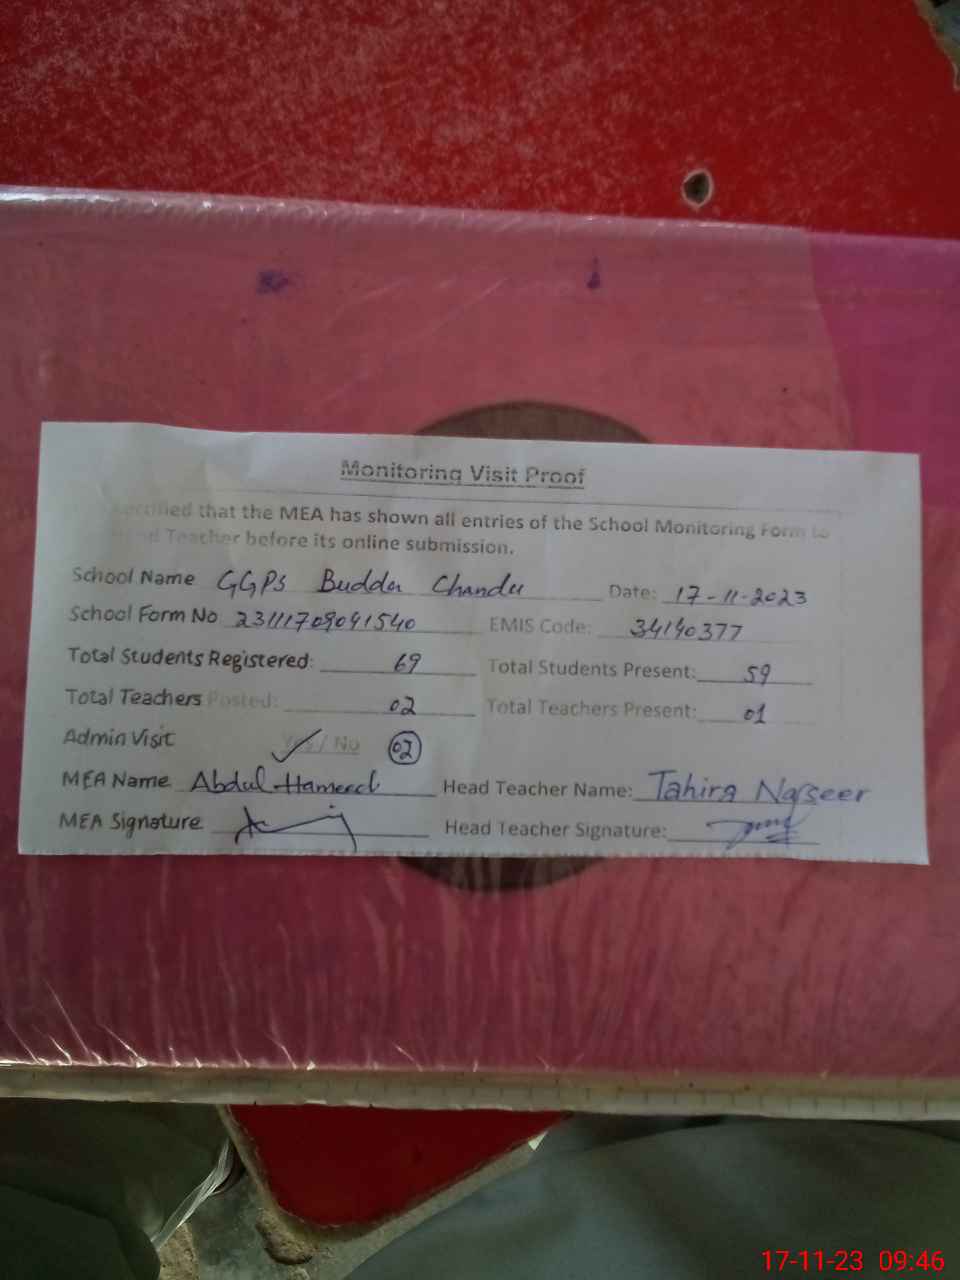 Monitoring Visit Proof
certified that the MEA has shown all entries of the School Monitoring Form to
Head Teacher before its online submission.
School Name GGPS Budda Chander Date: 17-11-2023
School Form No 23111709041540 EMIS Code: 34140377
Total Students Registered: 69 Total Students Present: 59
Total Teachers Posted: 02 Total Teachers Present: 01
Admin Visit Yes / No 02
MEA Name Abdul Hameed Head Teacher Name: Tahira Naseer
MEA Signature Head Teacher Signature:
17-11-23 09:46